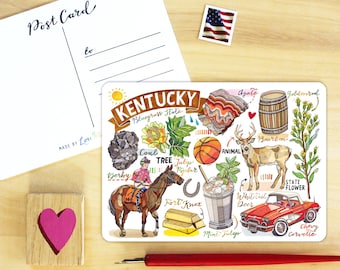 Post Card
to
MADE BY
KENTUCKY
Bluegrass State
Agate
Bourbon
Goldenrod
Coal
TREE
Tulip Poplar
ANIMAL
STATE FLOWER
Derby
White Tail Deer
Fort Knox
Mint Julep
Chevy Corvette